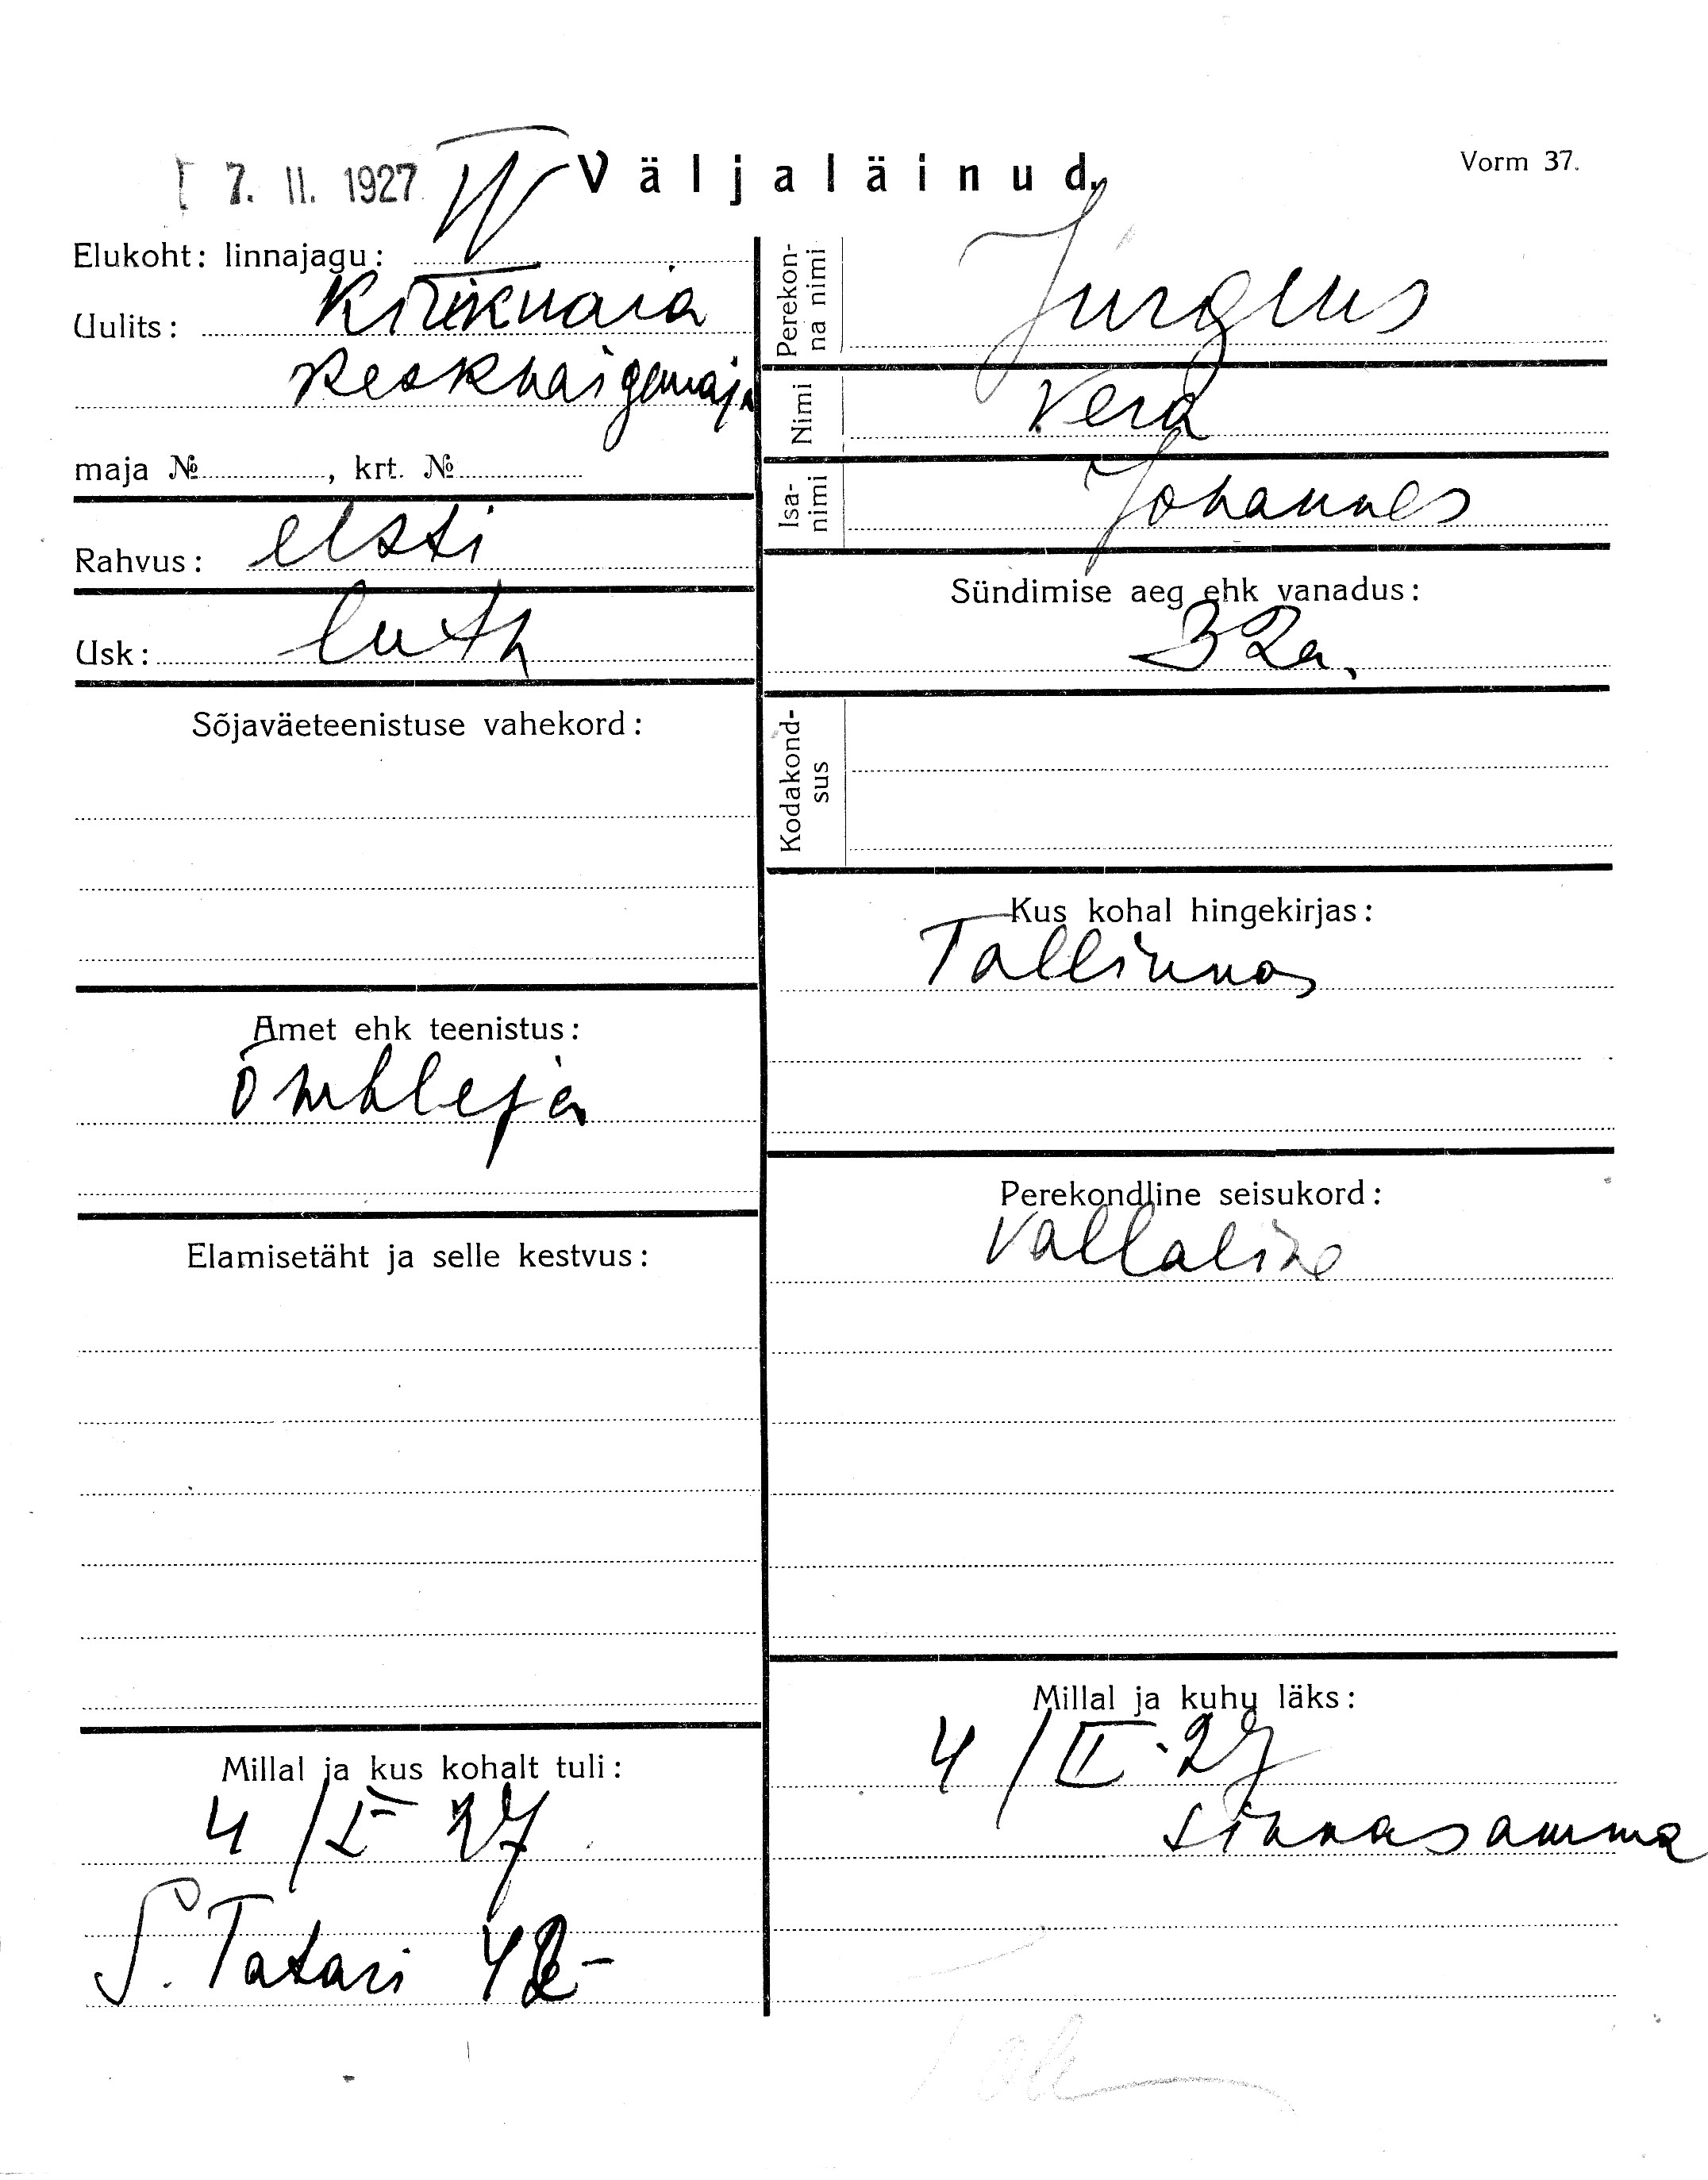 7. II. 1927
IV
Väljaläinud.
Vorm 37.
Elukoht: linnajagu:
Uulits: Kiriku aia
Keskhaigemaja
maja №, krt. №
Rahvus: eesti
Usk: luth
Sõjaväeteenistuse vahekord:
Amet ehk teenistus:
õmbleja
Elamisetäht ja selle kestvus:
Millal ja kus kohalt tuli:
4/I 27
S. Tatari 42-
Perekonna nimi Jürgens
Nimi Vera
Isanimi Johannes
Sündimise aeg ehk vanadus:
32a.
Kodakondsus
Kus kohal hingekirjas:
Tallinnas
Perekondline seisukord:
Vallaline
Millal ja kuhu läks:
4/II. 27
sinnasamma